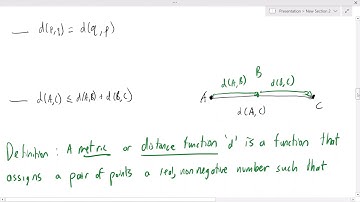 Presentation > New Section 2
d(p,q) = d(q,p)
d(A,B) B d(B,C)
d(A,C) ≤ d(A,B) + d(B,C) A C
d(A,C)
Definition: A metric or distance function 'd' is a function that
assigns a pair of points a real, nonnegative number such that